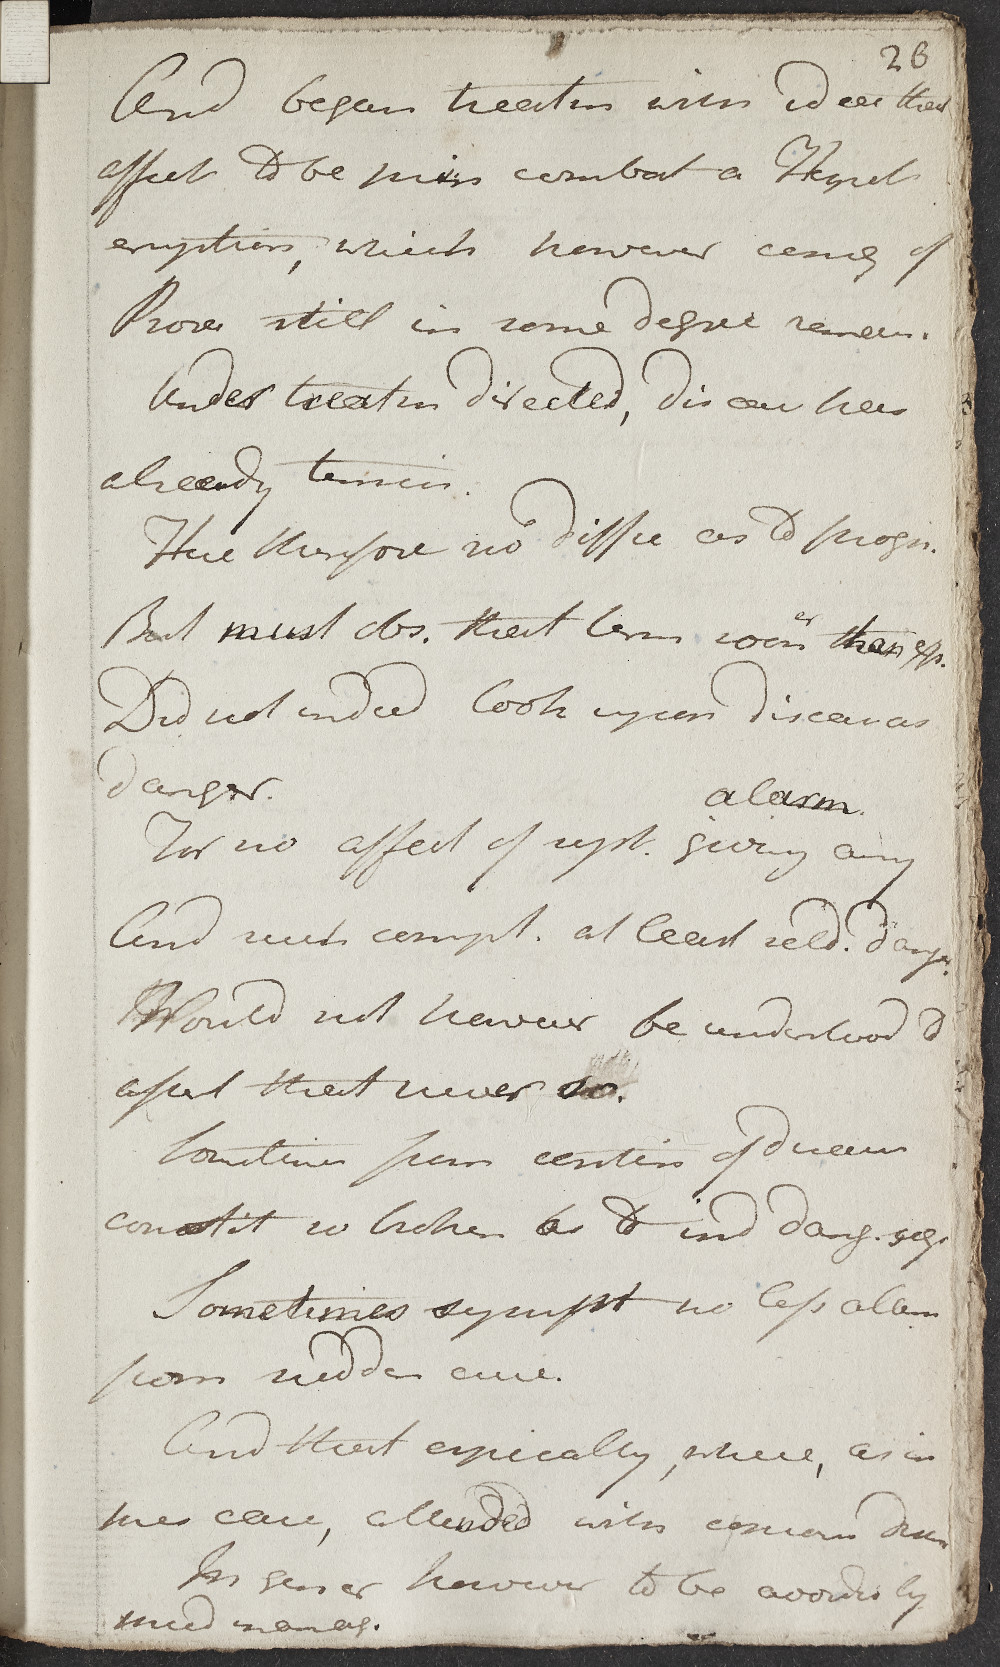 26
And began treatm with idea that
affect to be prin combat a Herpet
eruption, which however certaiy of
Prover still in some degree remain.
Under treatm directed, disease has
already termin.
Here therefore no diffic as to progn.
But must obs. that term sooner than exp.
Did not indeed look upon disease as
danger.
For no affect of syst. giving any alarm.
And such compl. at least seld. danger.
Would not however be understood to
assert that never so.
Sometimes from contin of disease
constit so broken as to ind dang.
Sometimes sympt no less alarm
from sudden cure.
And that especially, where, as in
pres case, attended with
In gener however to be avoided by
med manag.